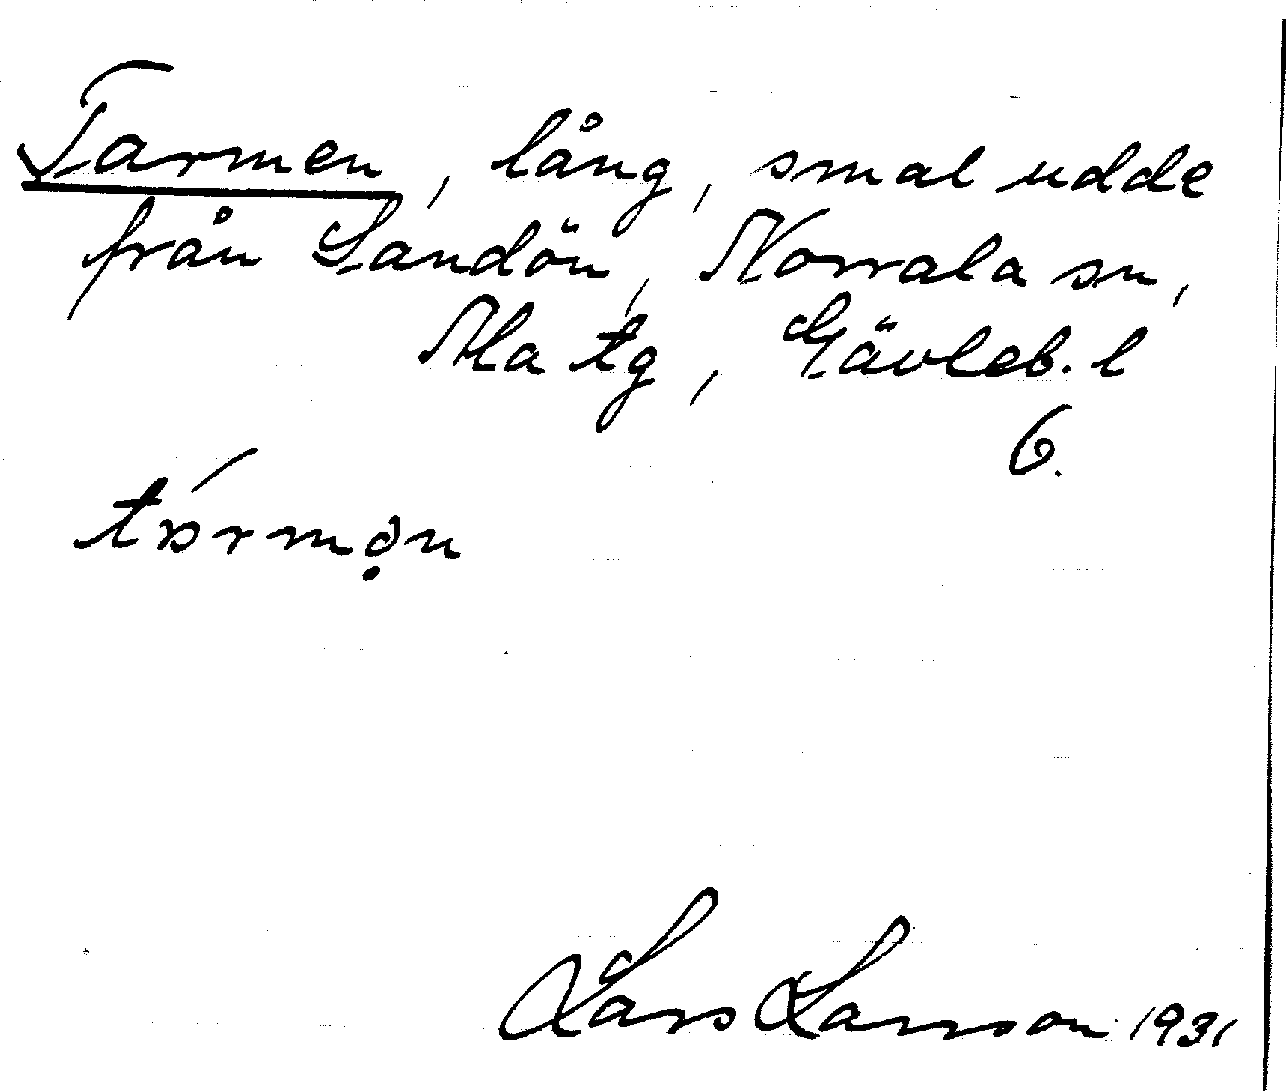 Tarmen, lång, smal udde
från Sandön, Norrala sn,
Ala tg, Gävleb. l
6.
Lars Larsson 1931